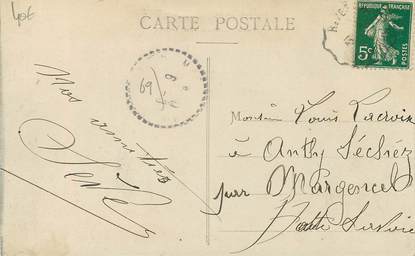 CARTE POSTALE
REPUBLIQUE FRANÇAISE
5c
POSTES
69
Nos amitiés
Monsieur Louis Lacroix
à Anthy Séchex
par Margencel
Haute Savoie